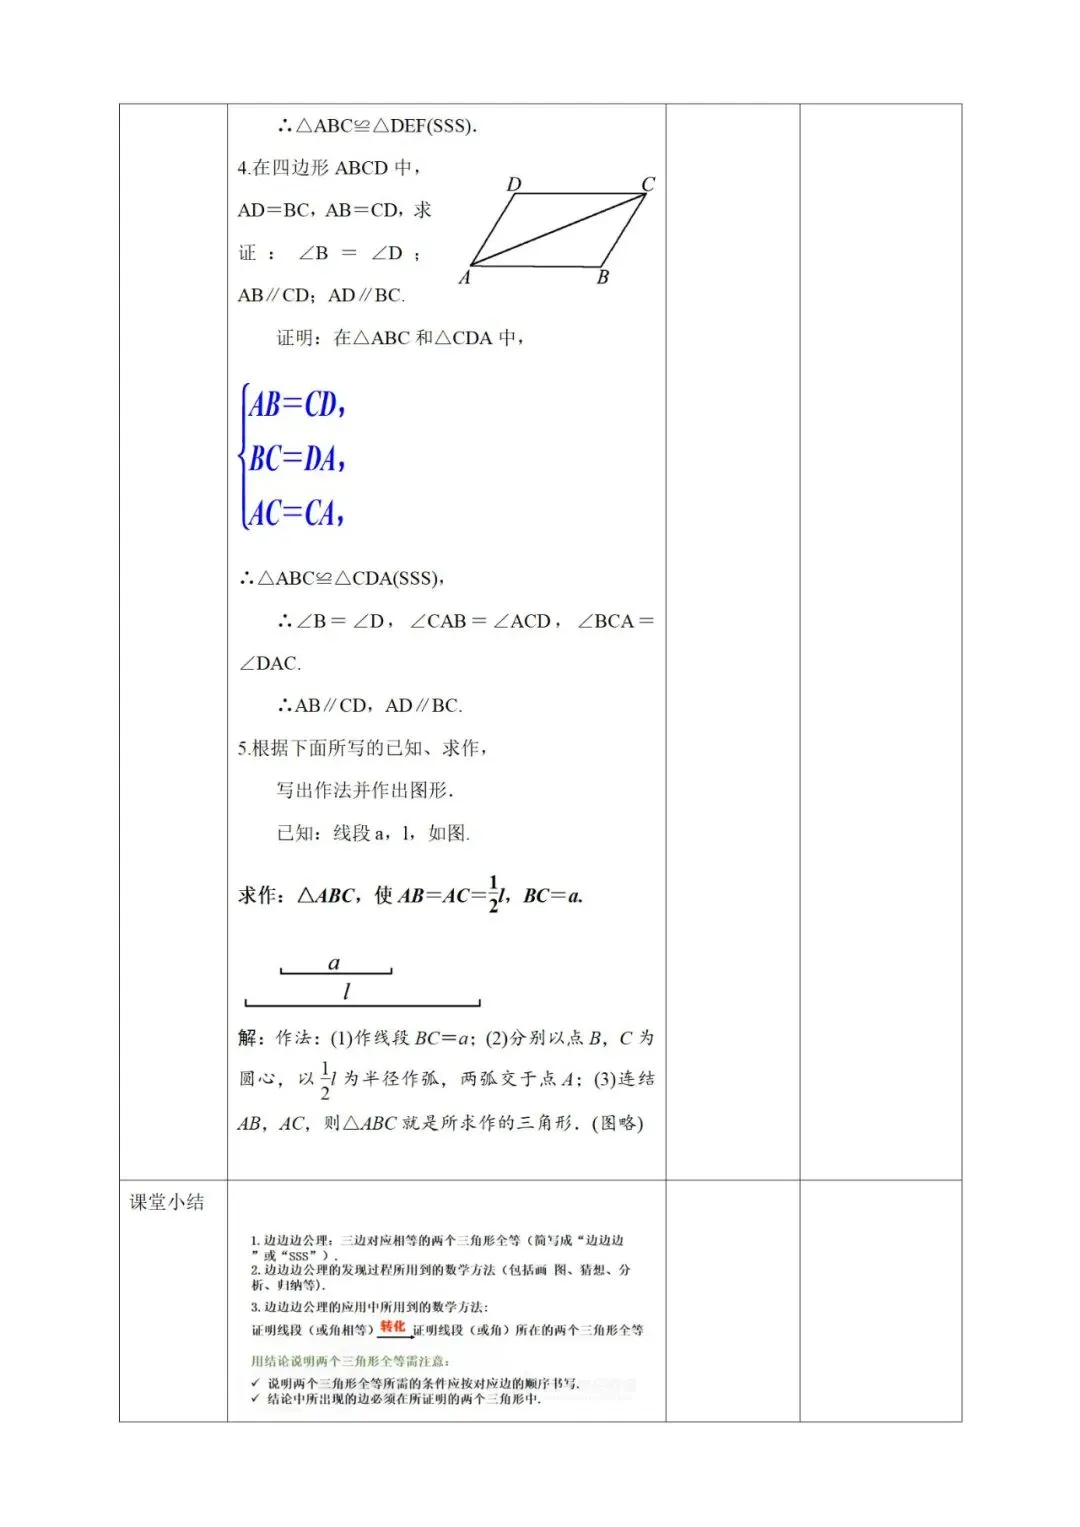 ∴△ABC≌△DEF(SSS).
4.在四边形 ABCD 中，
D
C
AD＝BC，AB＝CD，求
证：∠B＝∠D；
A
B
AB∥CD；AD∥BC.
证明：在△ABC 和△CDA 中，
AB=CD,
BC=DA,
AC=CA,
∴△ABC≌△CDA(SSS)，
∴∠B＝∠D，∠CAB＝∠ACD，∠BCA＝
∠DAC.
∴AB∥CD，AD∥BC.
5.根据下面所写的已知、求作，
写出作法并作出图形．
已知：线段 a，l，如图.
求作：△ABC，使 AB=AC=1/2 l，BC=a.
a
l
解：作法：(1)作线段 BC=a；(2)分别以点 B，C 为
圆心，以 1/2 l 为半径作弧，两弧交于点 A；(3)连结
AB，AC，则△ABC 就是所求作的三角形．(图略)
课堂小结
1. 边边边公理：三边对应相等的两个三角形全等（简写成“边边边
”或“SSS”）.
2. 边边边公理的发现过程所用到的数学方法（包括画 图、猜想、分
析、归纳等).
3. 边边边公理的应用中所用到的数学方法:
证明线段（或角相等）转化 证明线段（或角）所在的两个三角形全等
用结论说明两个三角形全等需注意：
✓ 说明两个三角形全等所需的条件应按对应边的顺序书写.
✓ 结论中所出现的边必须在所证明的两个三角形中.